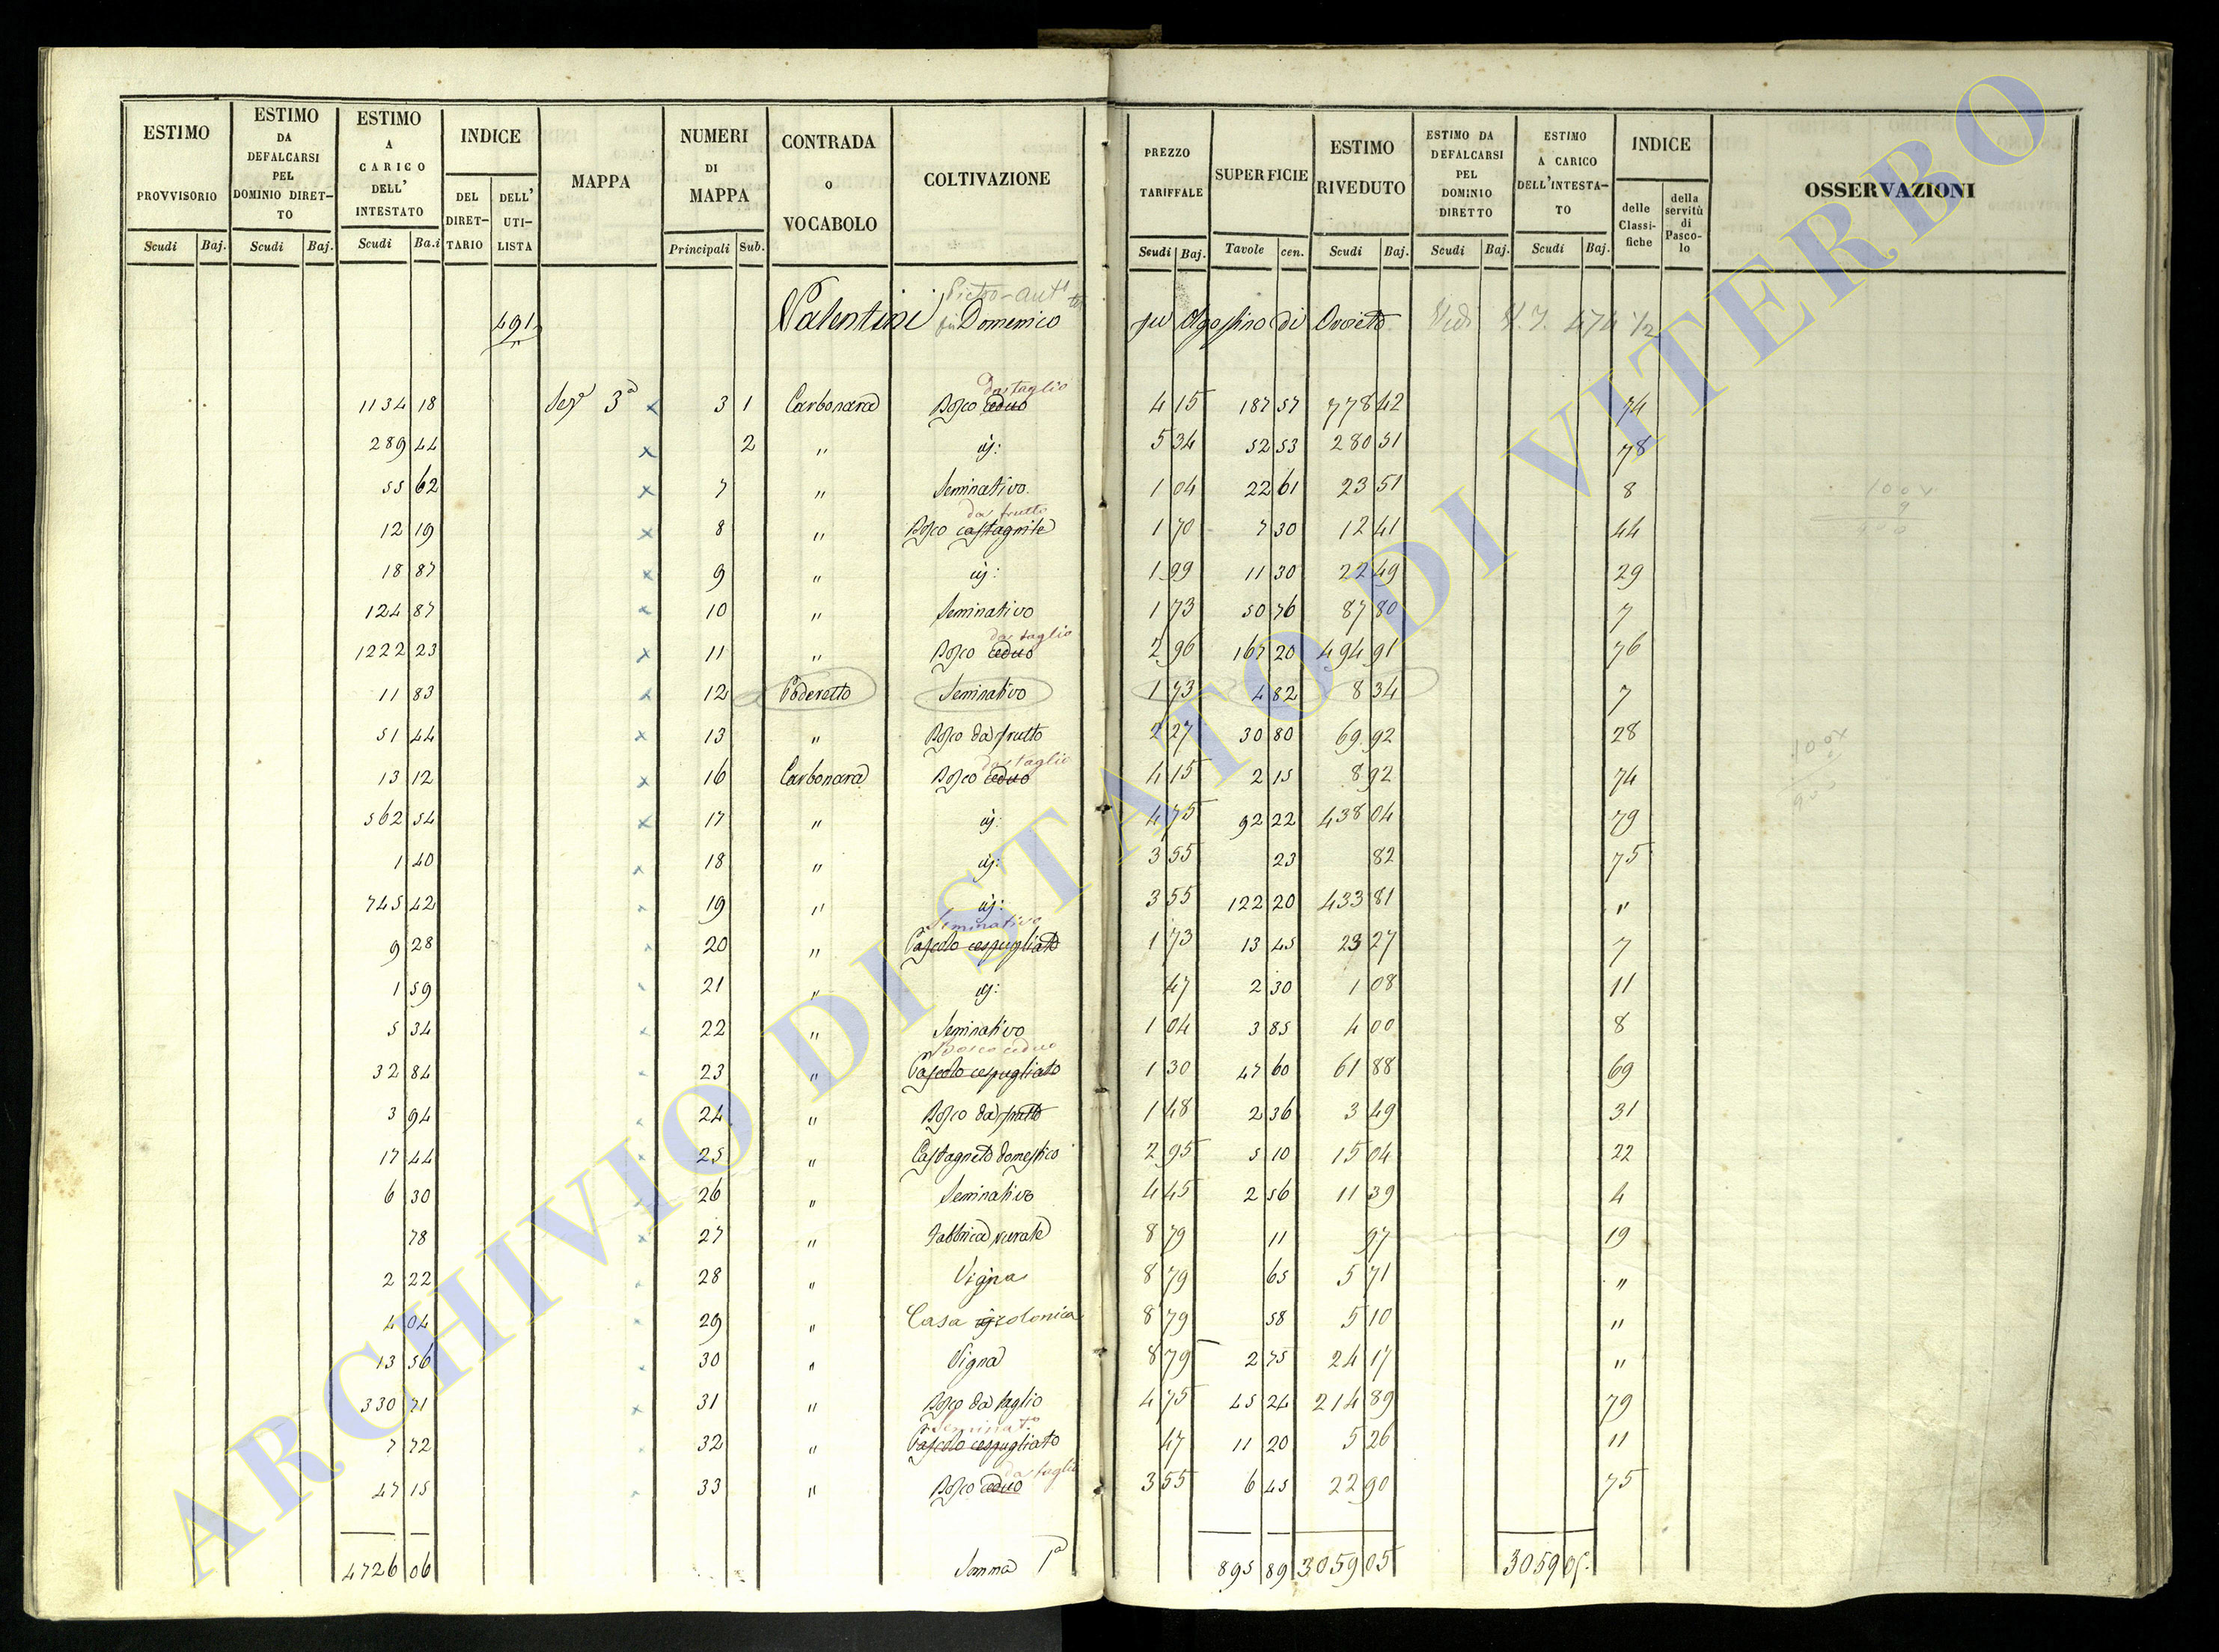 ESTIMO PROVVISORIO | ESTIMO DA DEFALCARSI PEL DOMINIO DIRETTO | ESTIMO A CARICO DELL' INTESTATO | INDICE | MAPPA | NUMERI DI MAPPA | CONTRADA o VOCABOLO | COLTIVAZIONE | PREZZO TARIFFALE | SUPERFICIE | ESTIMO RIVEDUTO | ESTIMO DA DEFALCARSI PEL DOMINIO DIRETTO | ESTIMO A CARICO DELL'INTESTATO | INDICE | OSSERVAZIONI
DEL DIRETTARIO | DELL' UTILISTA | delle Classifiche | della servitù di Pascolo
Scudi Baj. | Scudi Baj. | Scudi Ba.i | Principali Sub. | Scudi Baj. | Tavole cen. | Scudi Baj. | Scudi Baj. | Scudi Baj.
Pietro-Ant
491 Valentini Domenico fu Agostino di Orvieto Vedi 474 1/2
da taglio
1134 18 Sez 3a x 3 1 Carbonara Bosco ceduo 4 15 187 57 778 42 74
289 44 x 2 " id: 5 34 52 53 280 51 78
55 62 x 7 " Seminativo 1 04 22 61 23 51 8
da frutto
12 19 x 8 " Bosco castagnile 1 70 7 30 12 41 44
18 87 x 9 " id: 1 99 11 30 22 49 29
124 87 x 10 " Seminativo 1 73 50 76 87 80 7
da taglio
1222 23 x 11 " Bosco ceduo 2 96 167 20 494 91 76
11 83 x 12 Poderetto Seminativo 1 73 4 82 8 34 7
51 44 x 13 " Bosco da frutto 2 27 30 80 69 92 28
da taglio
13 12 x 16 Carbonara Bosco ceduo 4 15 2 15 8 92 74
562 54 x 17 " id: 4 75 92 22 438 04 79
1 40 x 18 " id: 3 55 23 82 75
745 42 x 19 " id: 3 55 122 20 433 81 "
Seminativo
9 28 x 20 " Pascolo cespugliato 1 73 13 45 23 27 7
1 59 x 21 " id: 47 2 30 1 08 11
5 34 x 22 " Seminativo 1 04 3 85 4 00 8
Bosco ceduo
32 84 x 23 " Pascolo cespugliato 1 30 47 60 61 88 69
3 94 x 24 " Bosco da frutto 1 48 2 36 3 49 31
17 44 x 25 " Castagneto domestico 2 95 5 10 15 04 22
6 30 x 26 " Seminativo 4 45 2 56 11 39 4
78 x 27 " Fabbrica rurale 8 79 11 97 19
2 22 x 28 " Vigna 8 79 65 5 71 "
4 04 x 29 " Casa colonica 8 79 58 5 10 "
13 56 x 30 " Vigna 8 79 2 75 24 17 "
330 71 x 31 " Bosco da taglio 4 75 45 24 214 89 79
Seminat.o
7 72 x 32 " Pascolo cespugliato 47 11 20 5 26 11
da taglio
47 15 x 33 " Bosco ceduo 3 55 6 45 22 90 75
4726 06 Somma 1a 895 89 3059 05 3059 05
ARCHIVIO DI STATO DI VITERBO